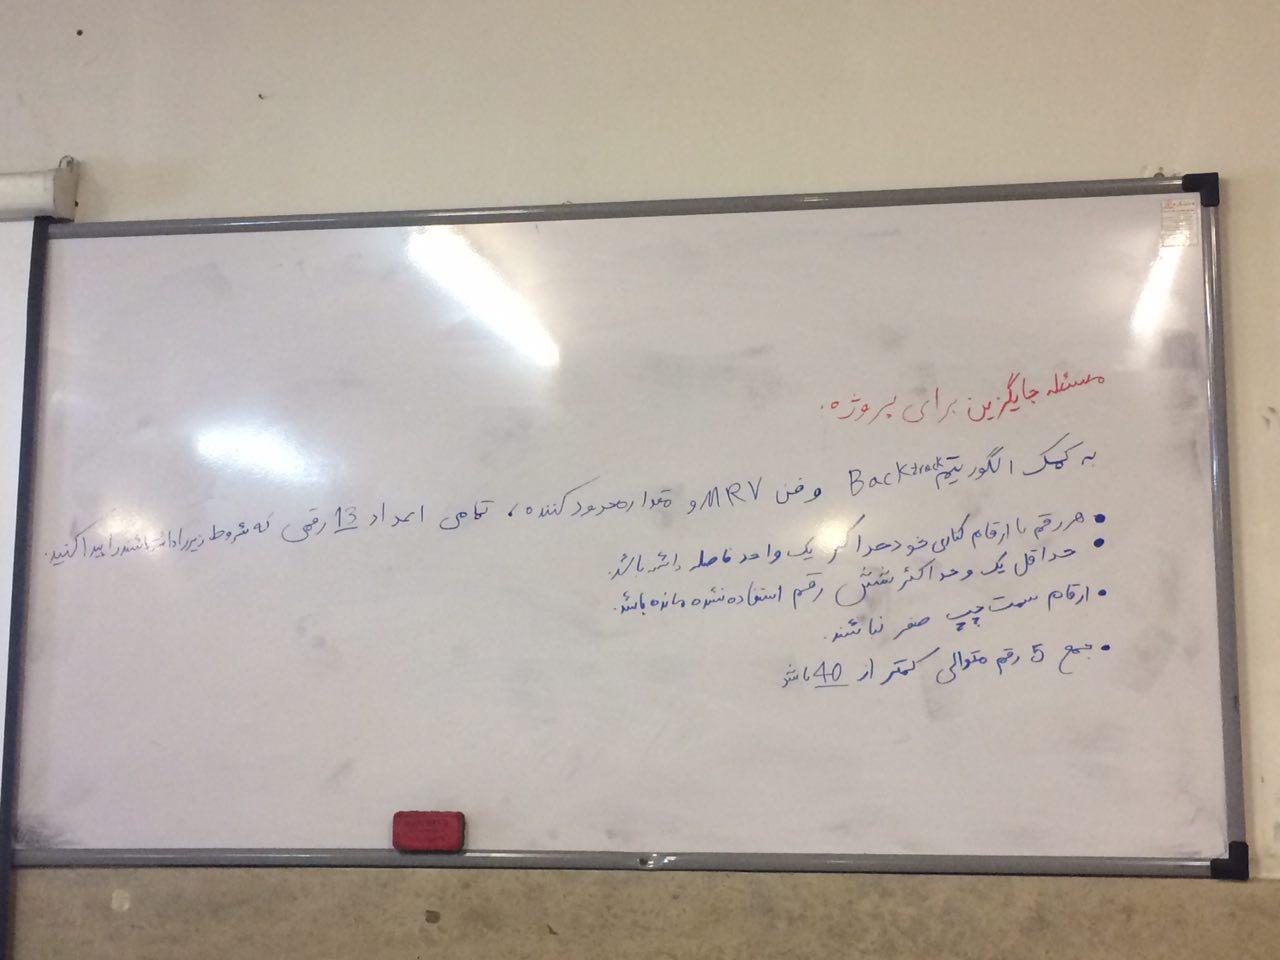 مسئله جایگزین برای پروژه:
به کمک الگوریتم Backtrack و فن MRV و مقدار محدود کننده، تمامی اعداد 13 رقمی که شروط زیر را داشته باشند را پیدا کنید.
• هر رقم با ارقام کناری خود حداکثر یک واحد فاصله داشته باشد.
• حداقل یک و حداکثر شش رقم استفاده نشده مانده باشد.
• ارقام سمت چپ صفر نباشند.
• جمع 5 رقم متوالی کمتر از 40 باشد